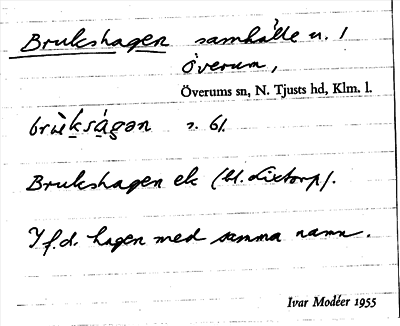 Brukshagen samhälle n. 1
Överum,
Överums sn, N. Tjusts hd, Klm. l.
brùksága̱n s. 61.
Brukshagen ek (bl. Lixtorp).
I f.d. hagen med samma namn.
Ivar Modéer 1955